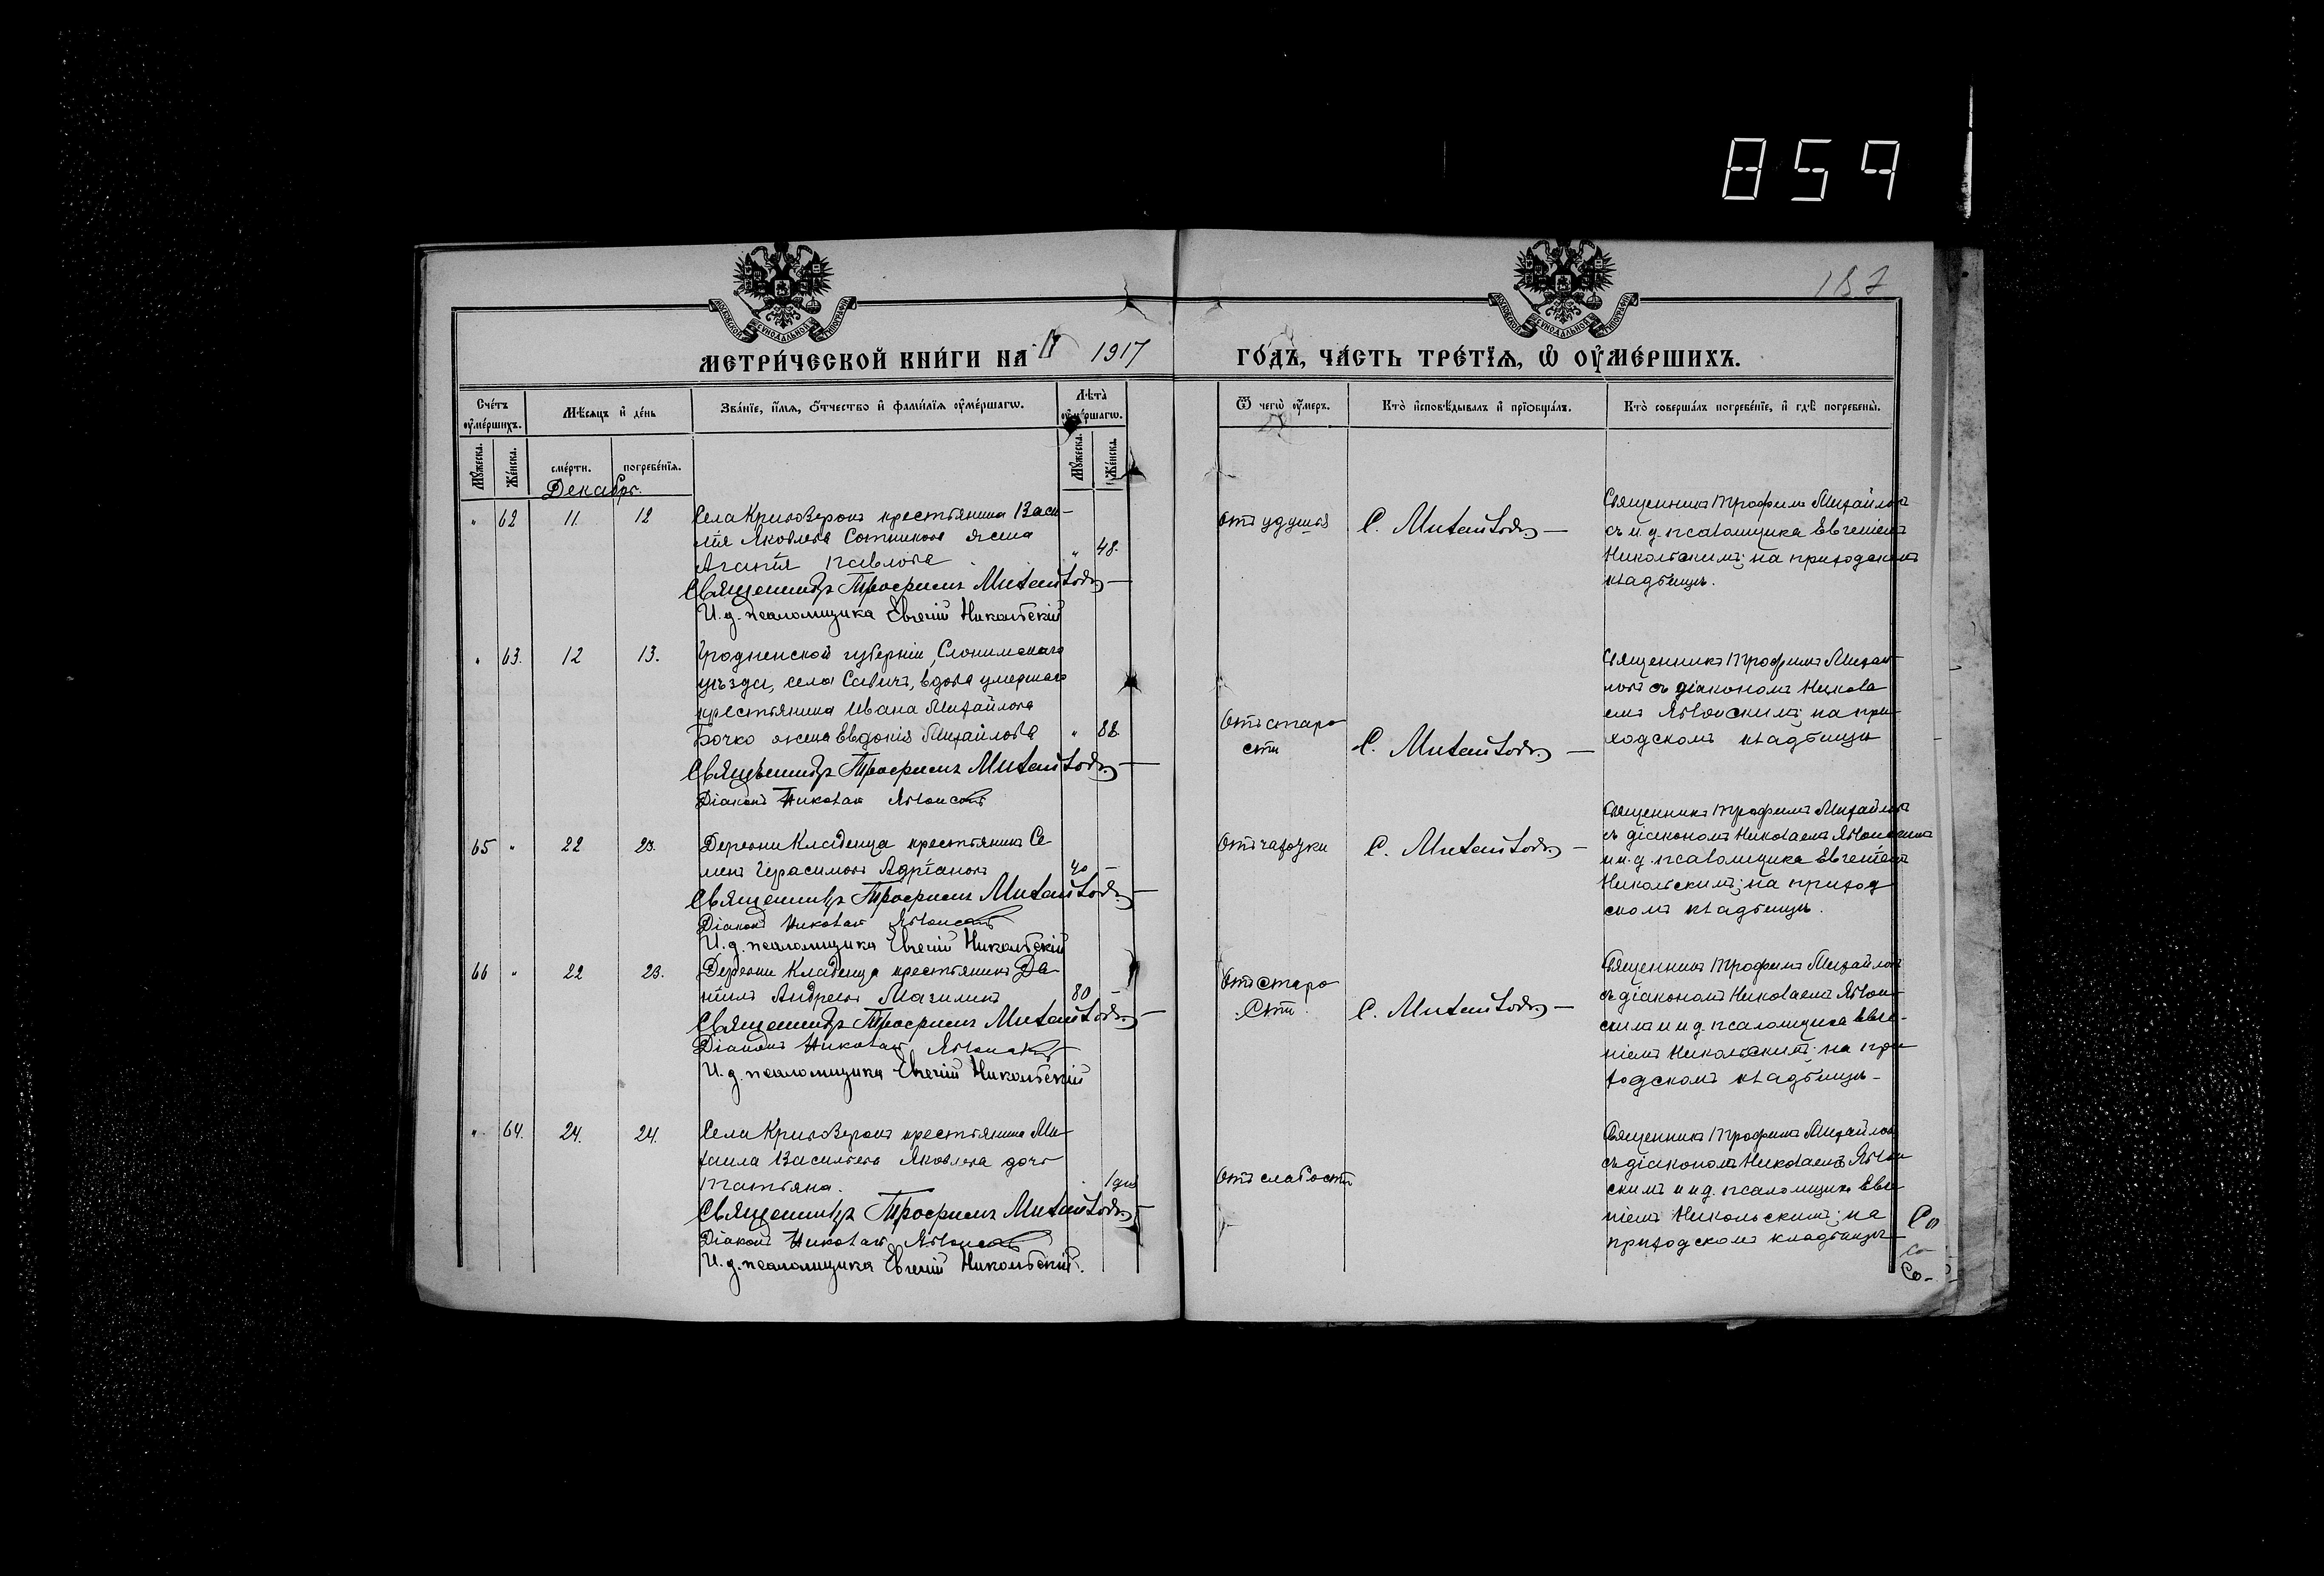 859
187
МОСКОВСКОЙ СУНОДАЛЬНОЙ ТИПОГРАФІИ
МОСКОВСКОЙ СУНОДАЛЬНОЙ ТИПОГРАФІИ
МЕТРИ́ЧЕСКОЙ КНИ́ГИ НА 1917
ГО́ДЪ, ЧА́СТЬ ТРЕ́ТЇѦ, Ѽ ОУ҆МЕ́РШИХЪ.
Сче́тъ оу҆ме́ршихъ.
Мѣ́сѧцъ и҆ де́нь
Зва́нїе, и҆́мѧ, ѻ҆́тчество и҆ фами́лїѧ оу҆ме́ршагѡ.
Лѣ́та оу҆ме́ршагѡ.
Ѿ чегѡ̀ оу҆́меръ.
Кто̀ и҆сповѣ́дывалъ и҆ прїѡбща́лъ.
Кто̀ соверша́лъ погребе́нїе, и҆ гдѣ̀ погребены̀.
Мꙋ́жеска.
Же́нска.
сме́рти.
погребе́нїѧ.
Мꙋ́жеска.
Же́нска.
Декабрь.
" 62 11 12
крестьянина Васи-
лія Яковлева Сотникова жена
Агапія Павлова " 48.
Священникъ Трофимъ Михайловъ
И. д. псаломщика Евгеній Никольскій
Отъ удушья
С. Михайловъ
Священникъ Трофимъ Михайловъ
съ и. д. псаломщика Евгеніемъ
Никольскимъ; на приходскомъ
кладбищѣ.
" 63. 12 13.
Гродненской губерніи, Слонимскаго
уѣзда, села Савичъ, вдова умершаго
крестьянина Ивана Михайлова
Бочко жена Евдокія Михайлова " 88.
Священникъ Трофимъ Михайловъ
Діаконъ Николай
Отъ старо
сти
С. Михайловъ
Священникъ Трофимъ Михай
ловъ съ діакономъ Никола
емъ на при
ходскомъ кладбищѣ
65 " 22 23.
Деревни Кладенца крестьянинъ Се
менъ Герасимовъ Адріановъ 40 -
Священникъ Трофимъ Михайловъ
Діаконъ Николай
И. д. псаломщика Евгеній Никольскій
Отъ чахотки
С. Михайловъ
Священникъ Трофимъ Михайловъ
съ діакономъ Николаемъ
и и. д. псаломщика Евгеніемъ
Никольскимъ; на приход
скомъ кладбищѣ.
66 " 22 23.
Деревни Кладенца крестьянинъ Да
ніилъ Андреевъ 80 -
Священникъ Трофимъ Михайловъ
Діаконъ Николай
И. д. псаломщика Евгеній Никольскій
Отъ старо
сти.
С. Михайловъ
Священникъ Трофимъ Михайловъ
съ діакономъ Николаемъ
скимъ и и д. псаломщика Евге-
ніемъ Никольскимъ; на при
ходскомъ кладбищѣ-
" 64. 24. 24.
крестьянина Ми
хаила Васильева Яковлева дочь
Татьяна. 1 дня
Священникъ Трофимъ Михайловъ
Діаконъ Николай
И. д. псаломщика Евгеній Никольскій.
Отъ слабости
Священникъ Трофимъ Михайловъ
съ діакономъ Николаемъ
скимъ и и д. псаломщика Евге
ніемъ Никольскимъ; на
приходскомъ кладбищѣ
Со
Со-